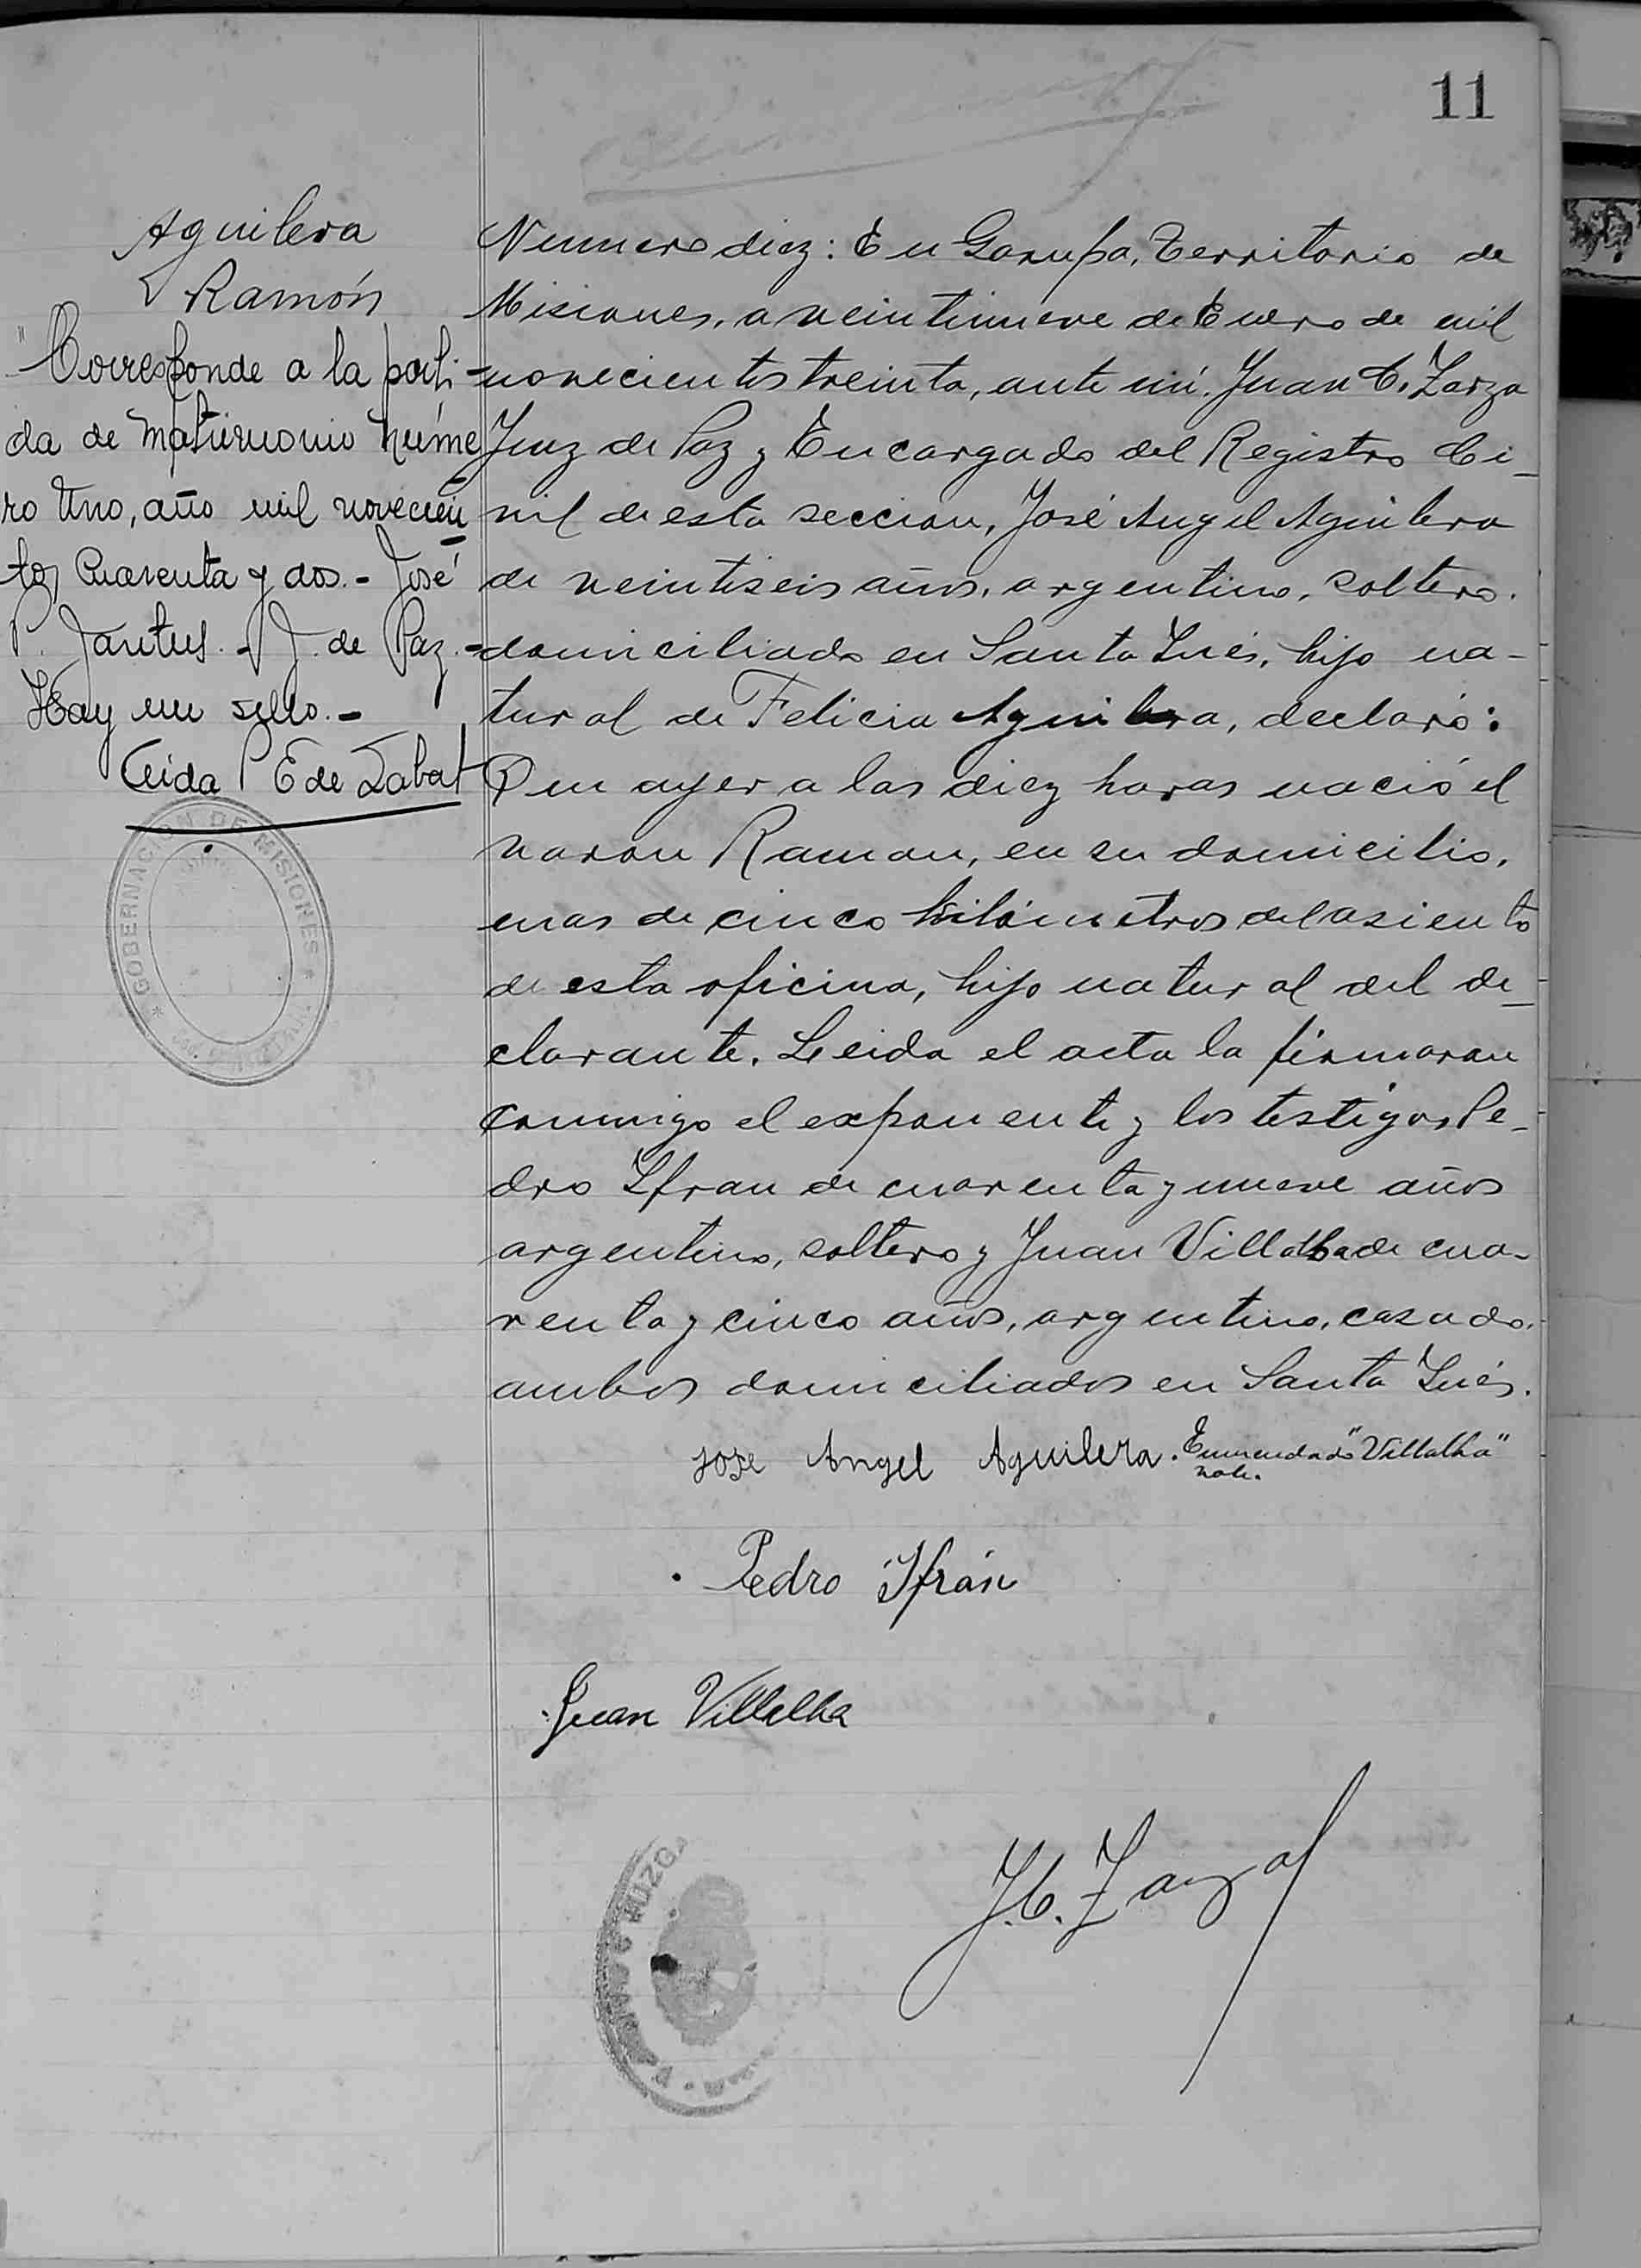 11
Aguilera
Ramón
"Corresponde a la parti-
da de matrimonio núme-
ro Uno, año mil novecien-
tos cuarenta y dos.- José
P. Jantus.- J. de Paz.-
Hay un sello.-
E de Labat
* GOBERNACION DE MISIONES *
Numero diez: En Garupa, Territorio de
Misiones, a veintinueve de Enero de mil
novecientos treinta, ante mi. Juan C. Zarza
Juez de Paz y Encargado del Registro Ci-
vil de esta seccion, José Angel Aguilera
de veintiseis años, argentino, soltero.
domiciliado en Santa Inés, hijo na-
tural de Felicia Aguilera, declaró:
Que ayer a las diez horas nació el
varon Ramon, en su domicilio,
mas de cinco kilómetros del asiento
de esta oficina, hijo natural del de-
clarante. Leida el acta la firmaran
conmigo el exponente y los testigos, Pe-
dro Ifran de cuarenta y nueve años
argentino, soltero y Juan Villalba de cua-
renta y cinco años, argentino, casado.
ambos domiciliados en Santa Inés.
Jose Angel Aguilera. Enmendado "Villalba"
vale.
Pedro Ifrán
Juan Villalba
J. C. Zarza
JUZGA